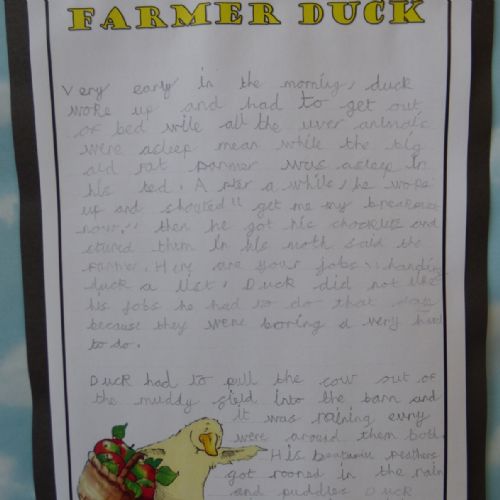 FARMER DUCK
Very early in the morning, duck
woke up and had to get out
of bed wile all the uver animals
were asleep mean while the big
old fat farmer was asleep in
his bed. After a while, he woke
up and shouted " get me my breakfast
now." then he got his chocklets and
stured them in his moth said the
farmer. Here are your jobs " handing
duck a list. Duck did not like
his jobs he had to do that day
because they were boring a very hard
to do.
Duck had to pull the cow out of
the muddy field into the barn and
it was raining
were around them both
His beutiful feathers
got rooned in the rain
and puddles Duck